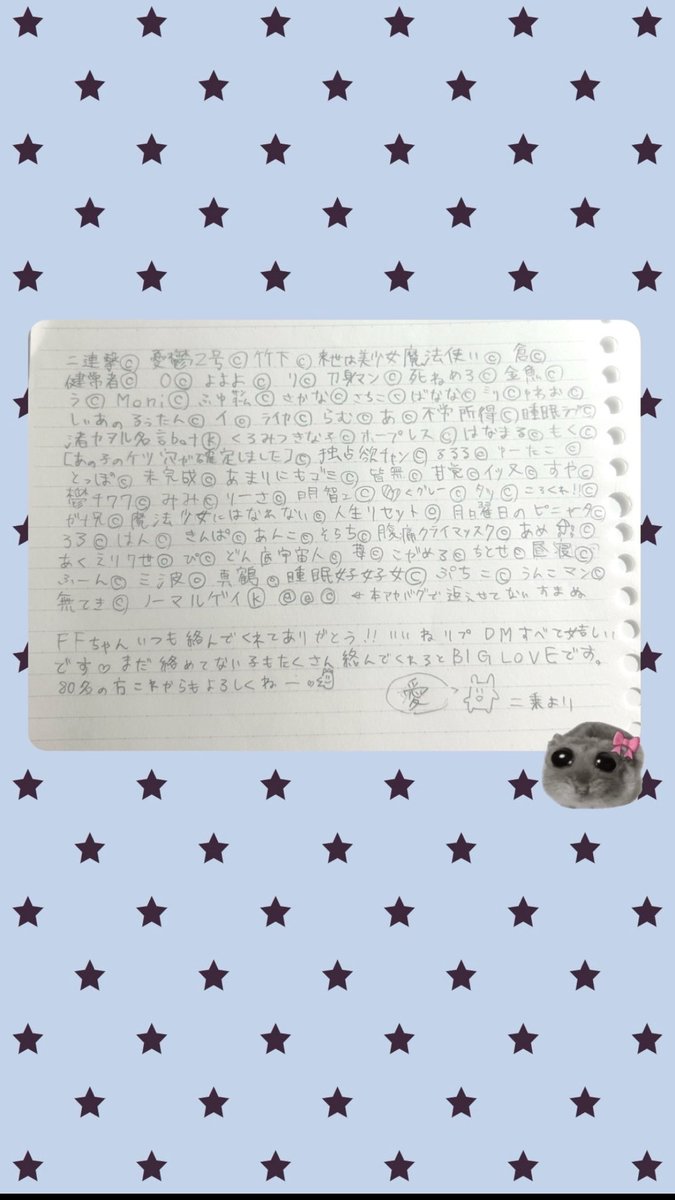 二連撃© 憂鬱2号© 竹下© 来世は美少女魔法使い© 倉©
健常者© O© よよよ© り© 刀身マン© 死ねめろ© 金魚©
う© Moni© さかな© さちこ© ばなな© ミリ©
しぃあのるぅたん© イ© ライヤ© らむ© あ© 不常所得©
渚カヲル名言bot k くろみつきなこ© ホープレス© はなまる© もく©
[あの子のケツ穴が確定しました]© 独占欲チャン© るるる© りーたこ©
とっぽ© 未完成© あまりにもゴミ© 皆無© 甘覚© イッヌ© すや©
鬱777© みみ© りーさ© 明智© グレー© タツ© ころくれ!!©
がり兄© 魔法少女にはなれない© 人生リセット© 月曜日のピニャータ©
ろろ© はん© さんぱ© あんこ© そらち© 腹痛クライマックス© あめ©
あくえりクゼ© ぴ© どん底宇宙人© 尊© こがめる© ちとせ© 昼寝©
ふーん© 三波© 真鶴© 睡眠好好女© ぷちこ© うんこマン©
無てき© ノーマルゲイ k @@© ←本アカバグで返えせてないすまぬ
FFちゃんいつも絡んでくれてありがとう!! いいねリプDMすべて嬉しい
です♡ まだ絡めてない子もたくさん絡んでくれるとBIG LOVEです。
80名の方これからもよろしくねー
愛 二乗より